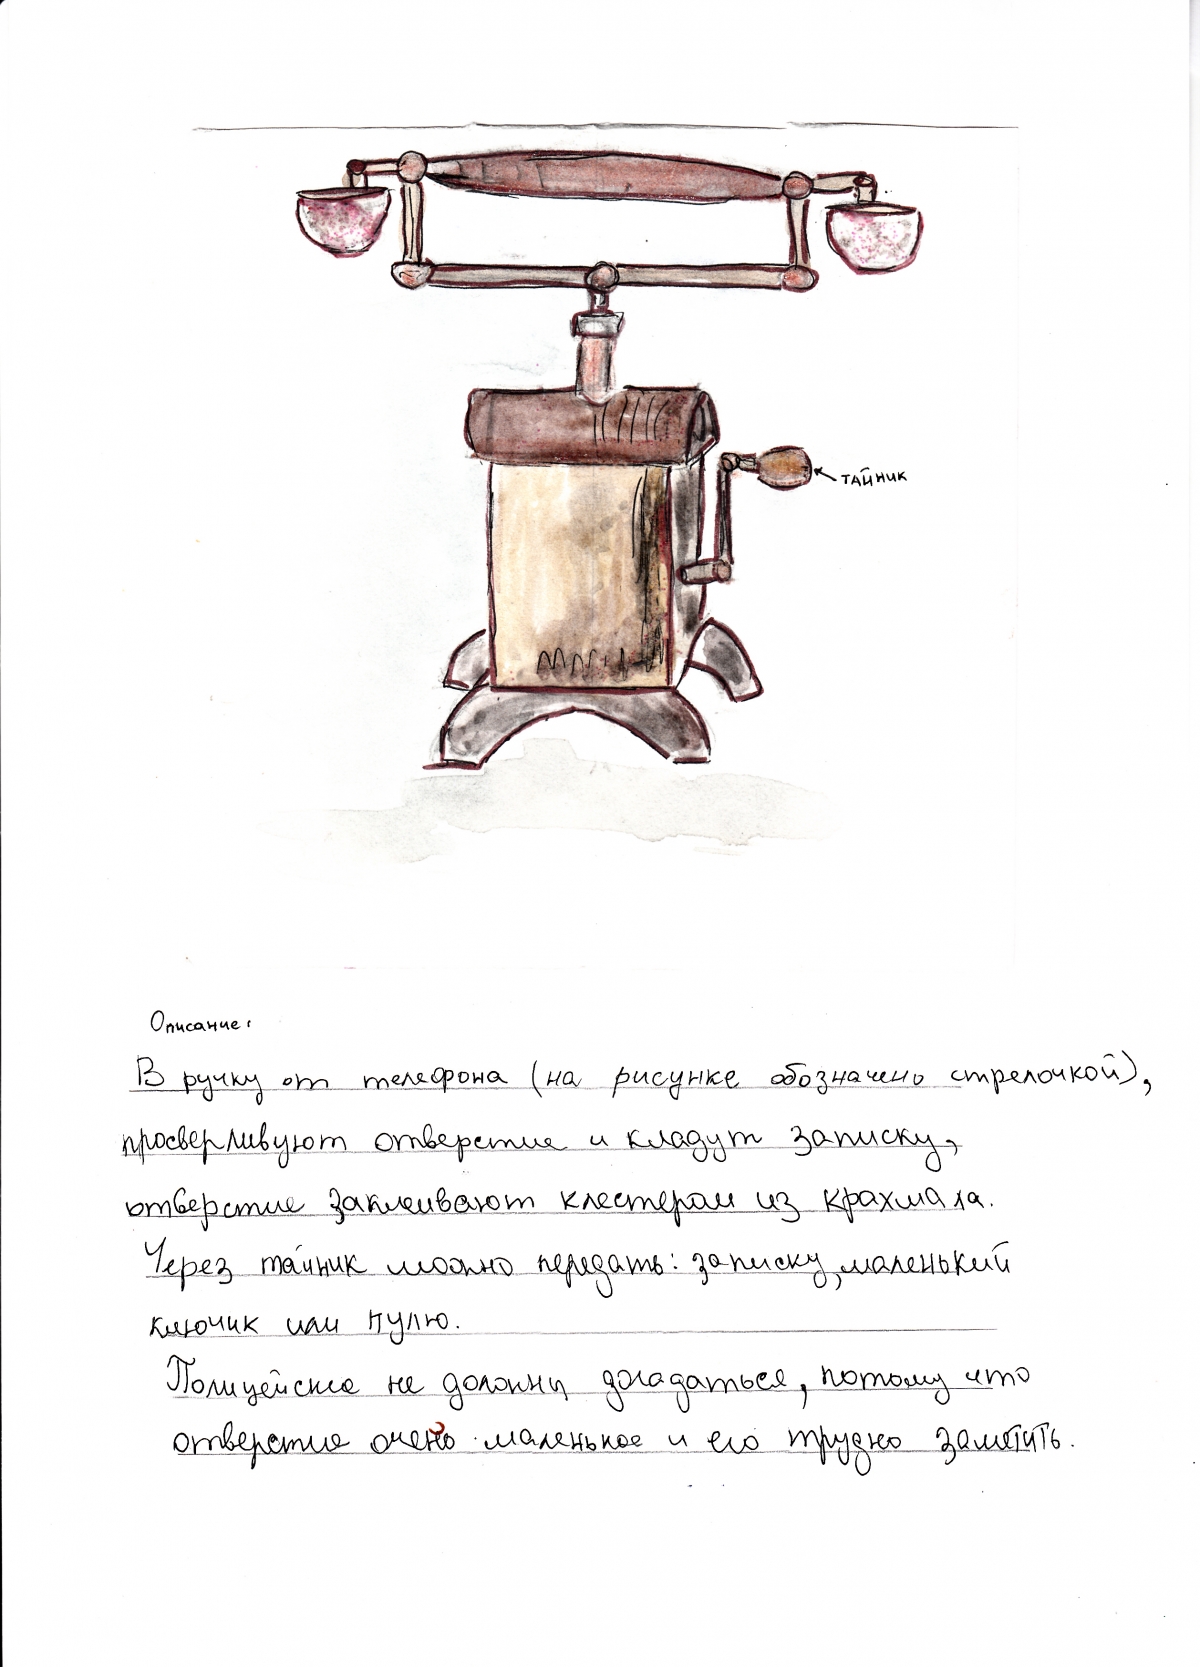 тайник
Описание:
В ручку от телефона (на рисунке обозначено стрелочкой),
просверливуют отверстие и кладут записку,
отверстие заклеивают клестером из крахмала.
Через тайник можно передать: записку, маленький
ключик или пулю.
Полицейские не должны догадаться, потому что
отверстие очень маленькое и его трудно заметить.